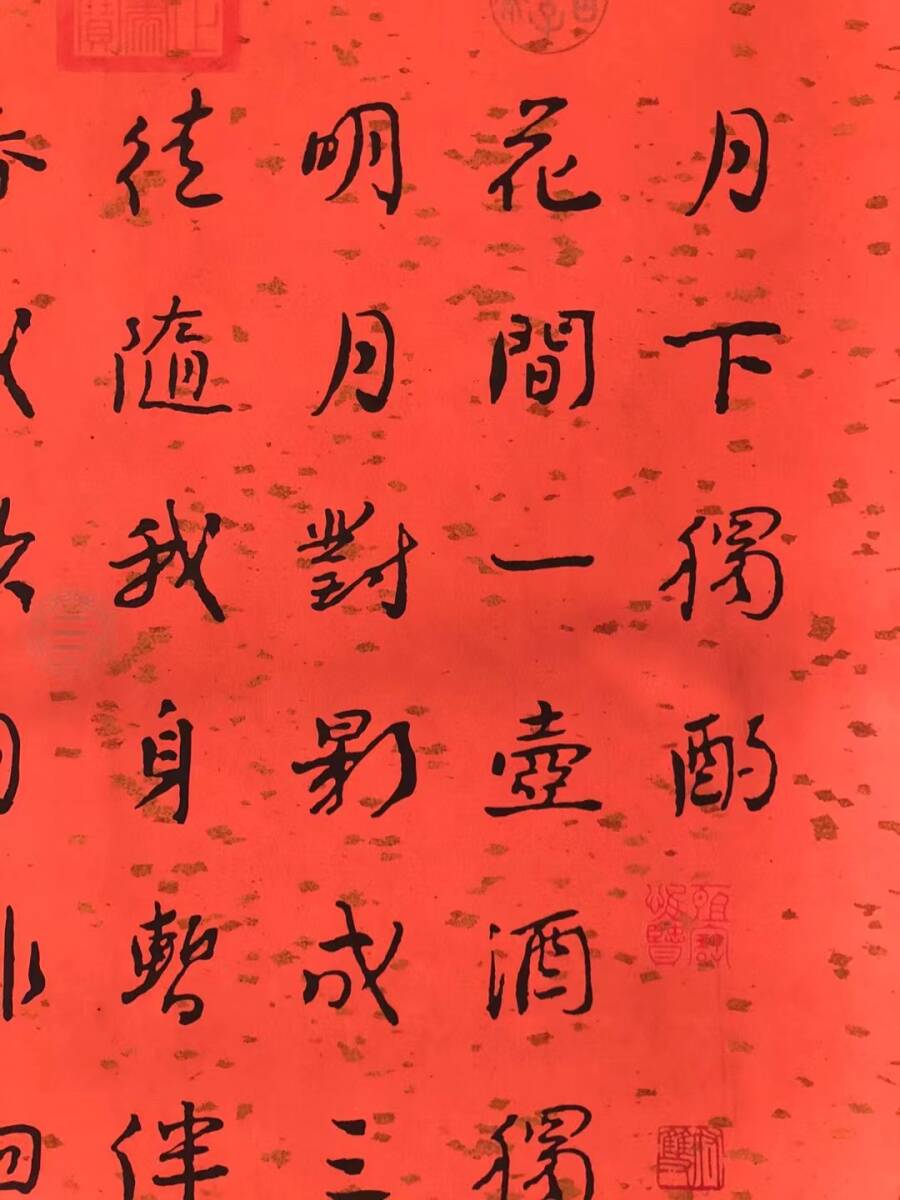 月下獨酌
花間一壺酒獨
明月對影成三
徒隨我身暫伴